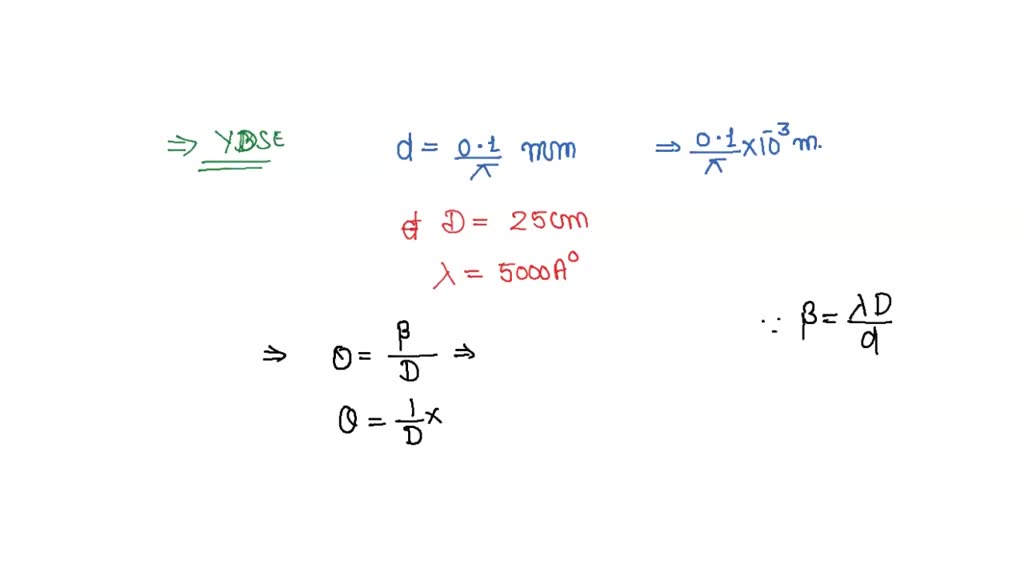 ⇒ YDSE d = 0.1/π mm ⇒ 0.1/π × 10⁻³ m.
D = 25cm
λ = 5000A⁰
∵ β = λD/d
⇒ θ = β/D ⇒
θ = 1/D ×